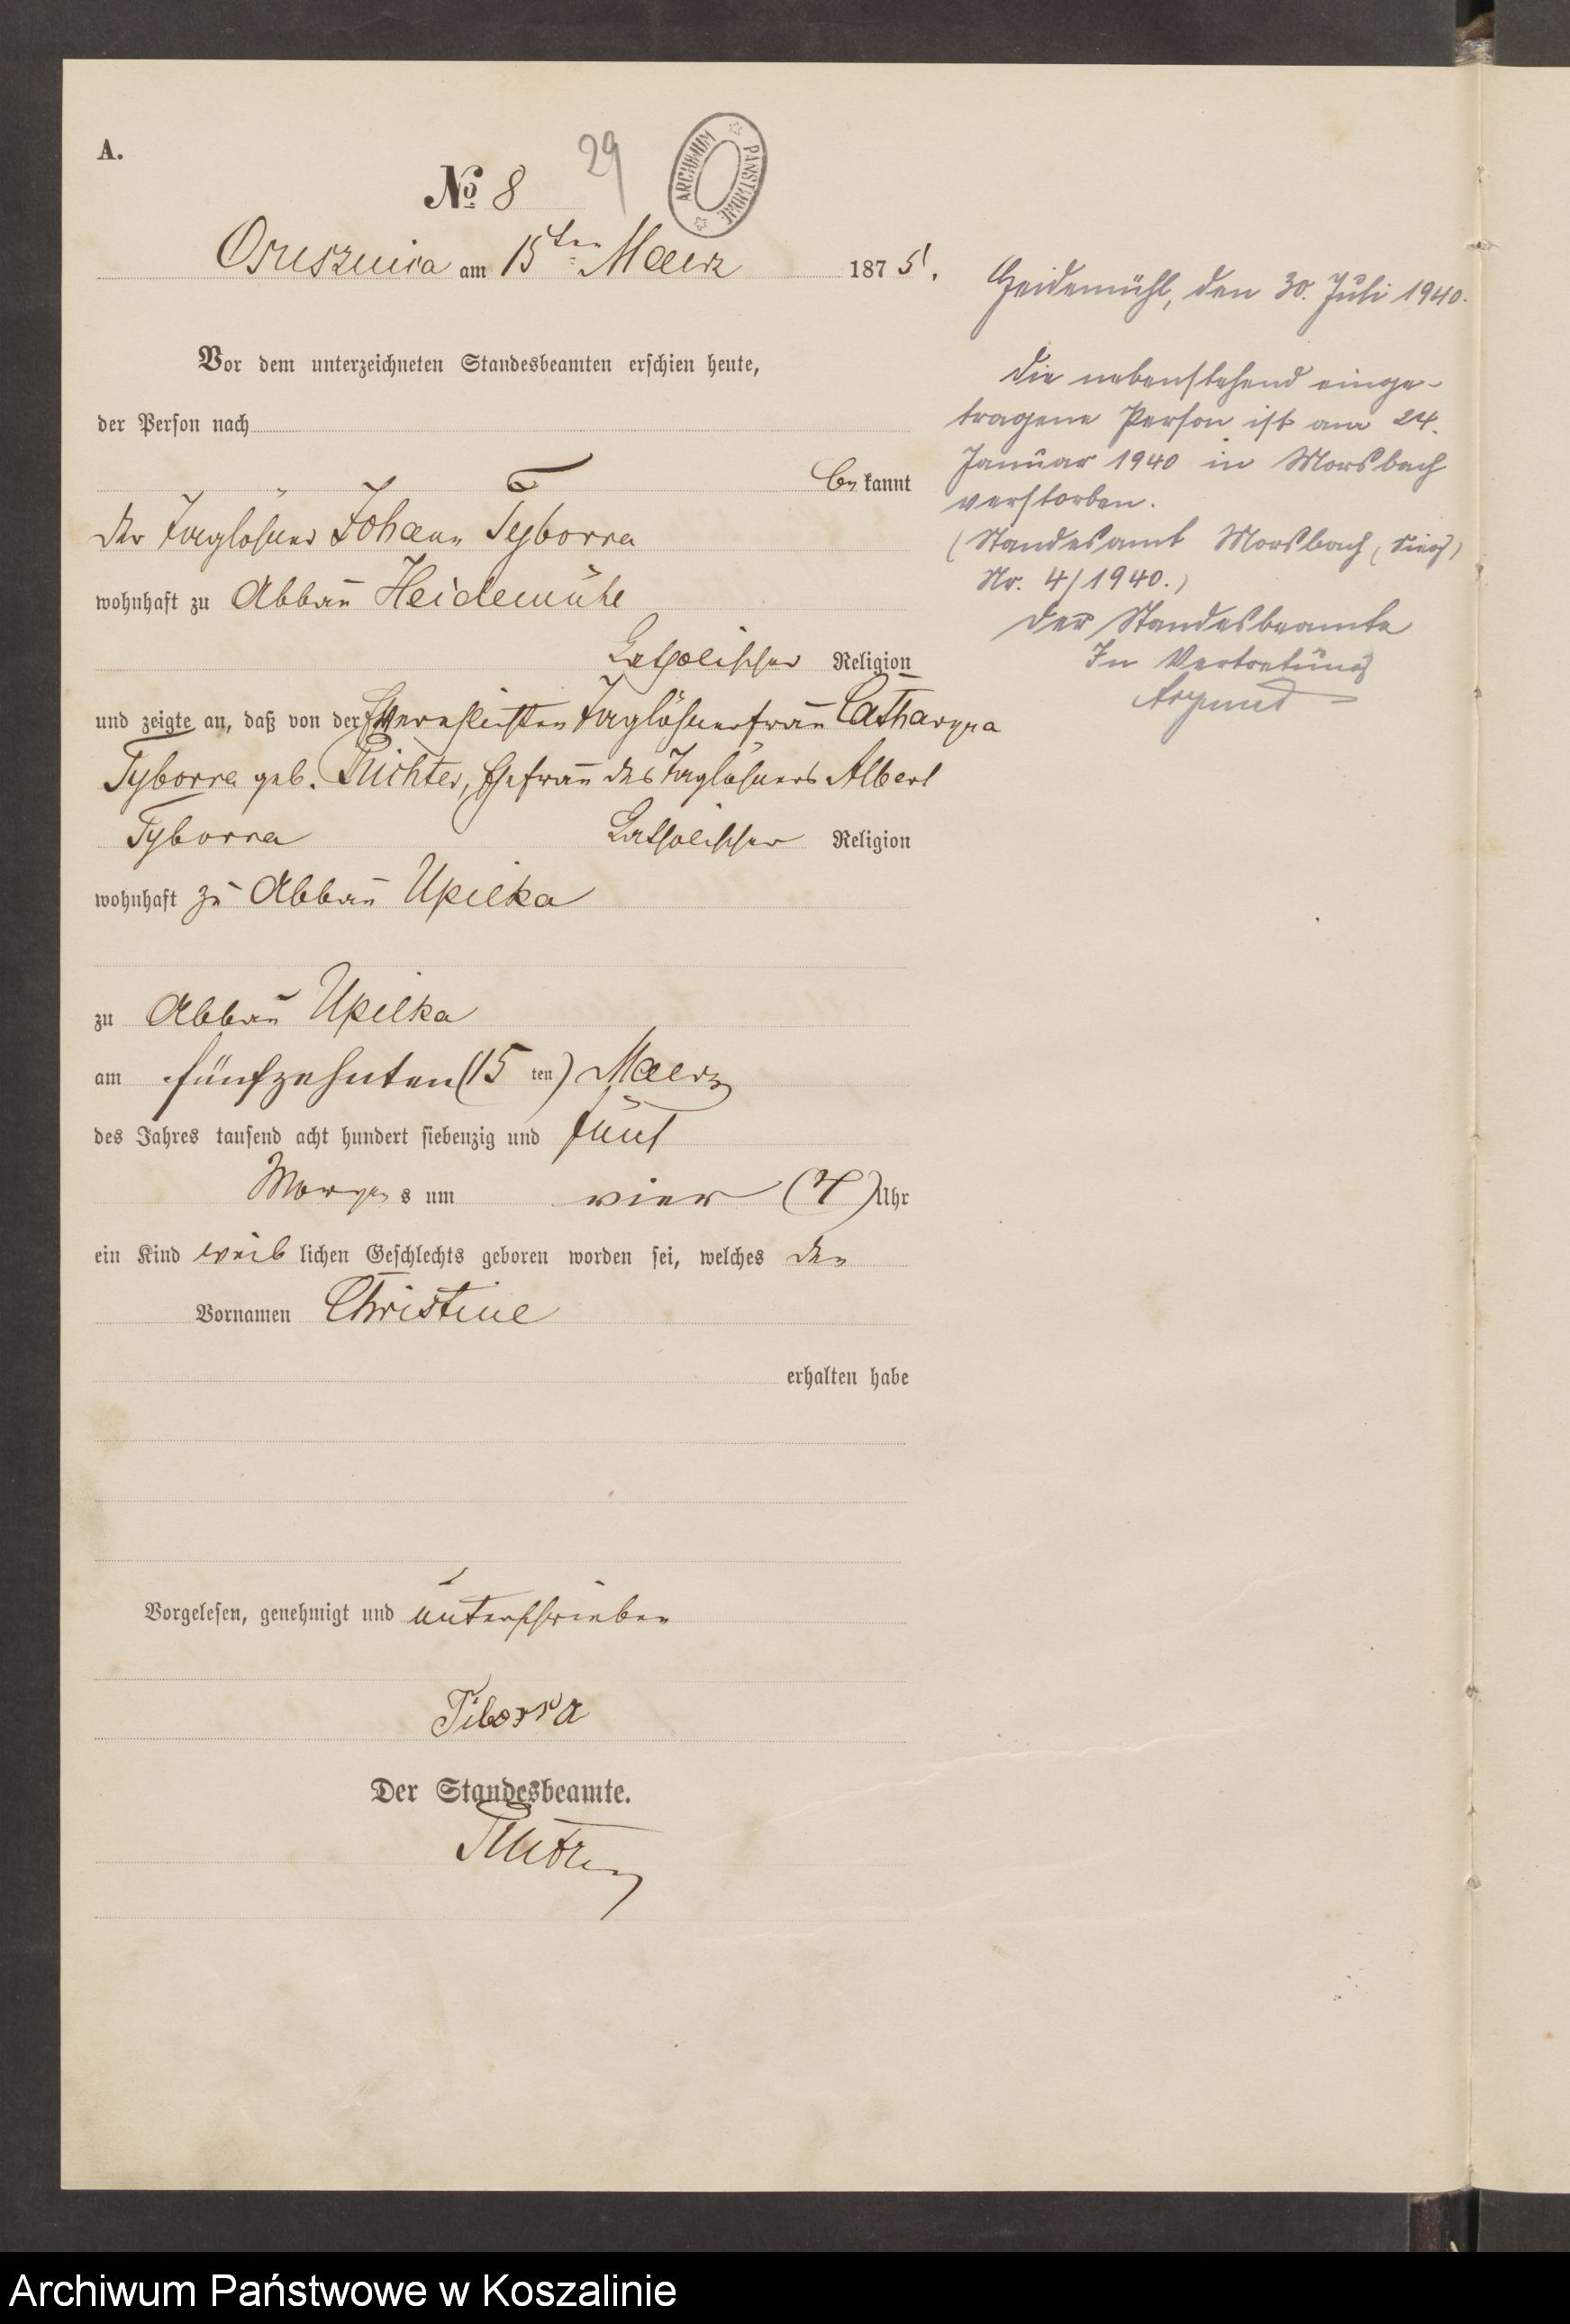 A.
№ 8
29
ARCHIWUM PAŃSTWOWE
Osusznica am 15ten Maerz 1875.
Vor dem unterzeichneten Standesbeamten erschien heute,
der Person nach
be kannt
der Taglöhner Johann Tyborra
wohnhaft zu Abbau Heidemühe
katholischer Religion
und zeigte an, daß von der Taglöhnerfrau Catharyna
Tyborra geb. Richter, Ehefrau des Taglöhners Albert
Tyborra katholischer Religion
wohnhaft zu Abbau Upilka
zu Abbau Upilka
am fünfzehnten (15 ten) Maerz
des Jahres tausend acht hundert siebenzig und fünf
Morgen s um vier (4) Uhr
ein Kind weib lichen Geschlechts geboren worden sei, welches den
Vornamen Christine
erhalten habe
Vorgelesen, genehmigt und unterschrieben
Tiborra
Der Standesbeamte.
Heidemühl, den 30. Juli 1940.
Die nebenstehend einge-
tragene Person ist am 24.
Januar 1940 in Morsbach
verstorben.
(Standesamt Morsbach, Sieg)
Nr. 4/1940.)
Der Standesbeamte
In Vertretung
Archiwum Państwowe w Koszalinie